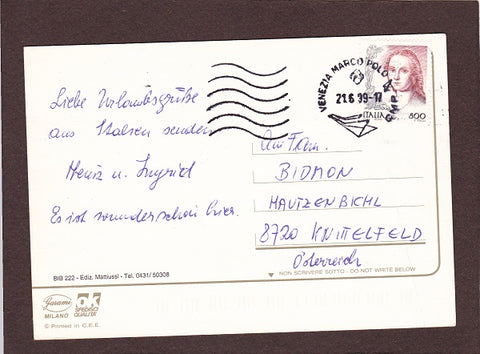 Liebe Urlaubsgrüße
aus Italien senden
Heinz u. Ingrid
Es ist wunderschön hier.
VENEZIA MARCO POLO CMP
21.6.99-17
ITALIA 800
An Fam.
BIDMON
HAUTZENBICHL
8720 KNITTELFELD
Österreich
BIB 222 - Ediz. Mattiussi - Tel. 0431/50308
NON SCRIVERE SOTTO - DO NOT WRITE BELOW
Garami
MILANO
OK
SPECIAL
QUALITÄT
© Printed in C.E.E.